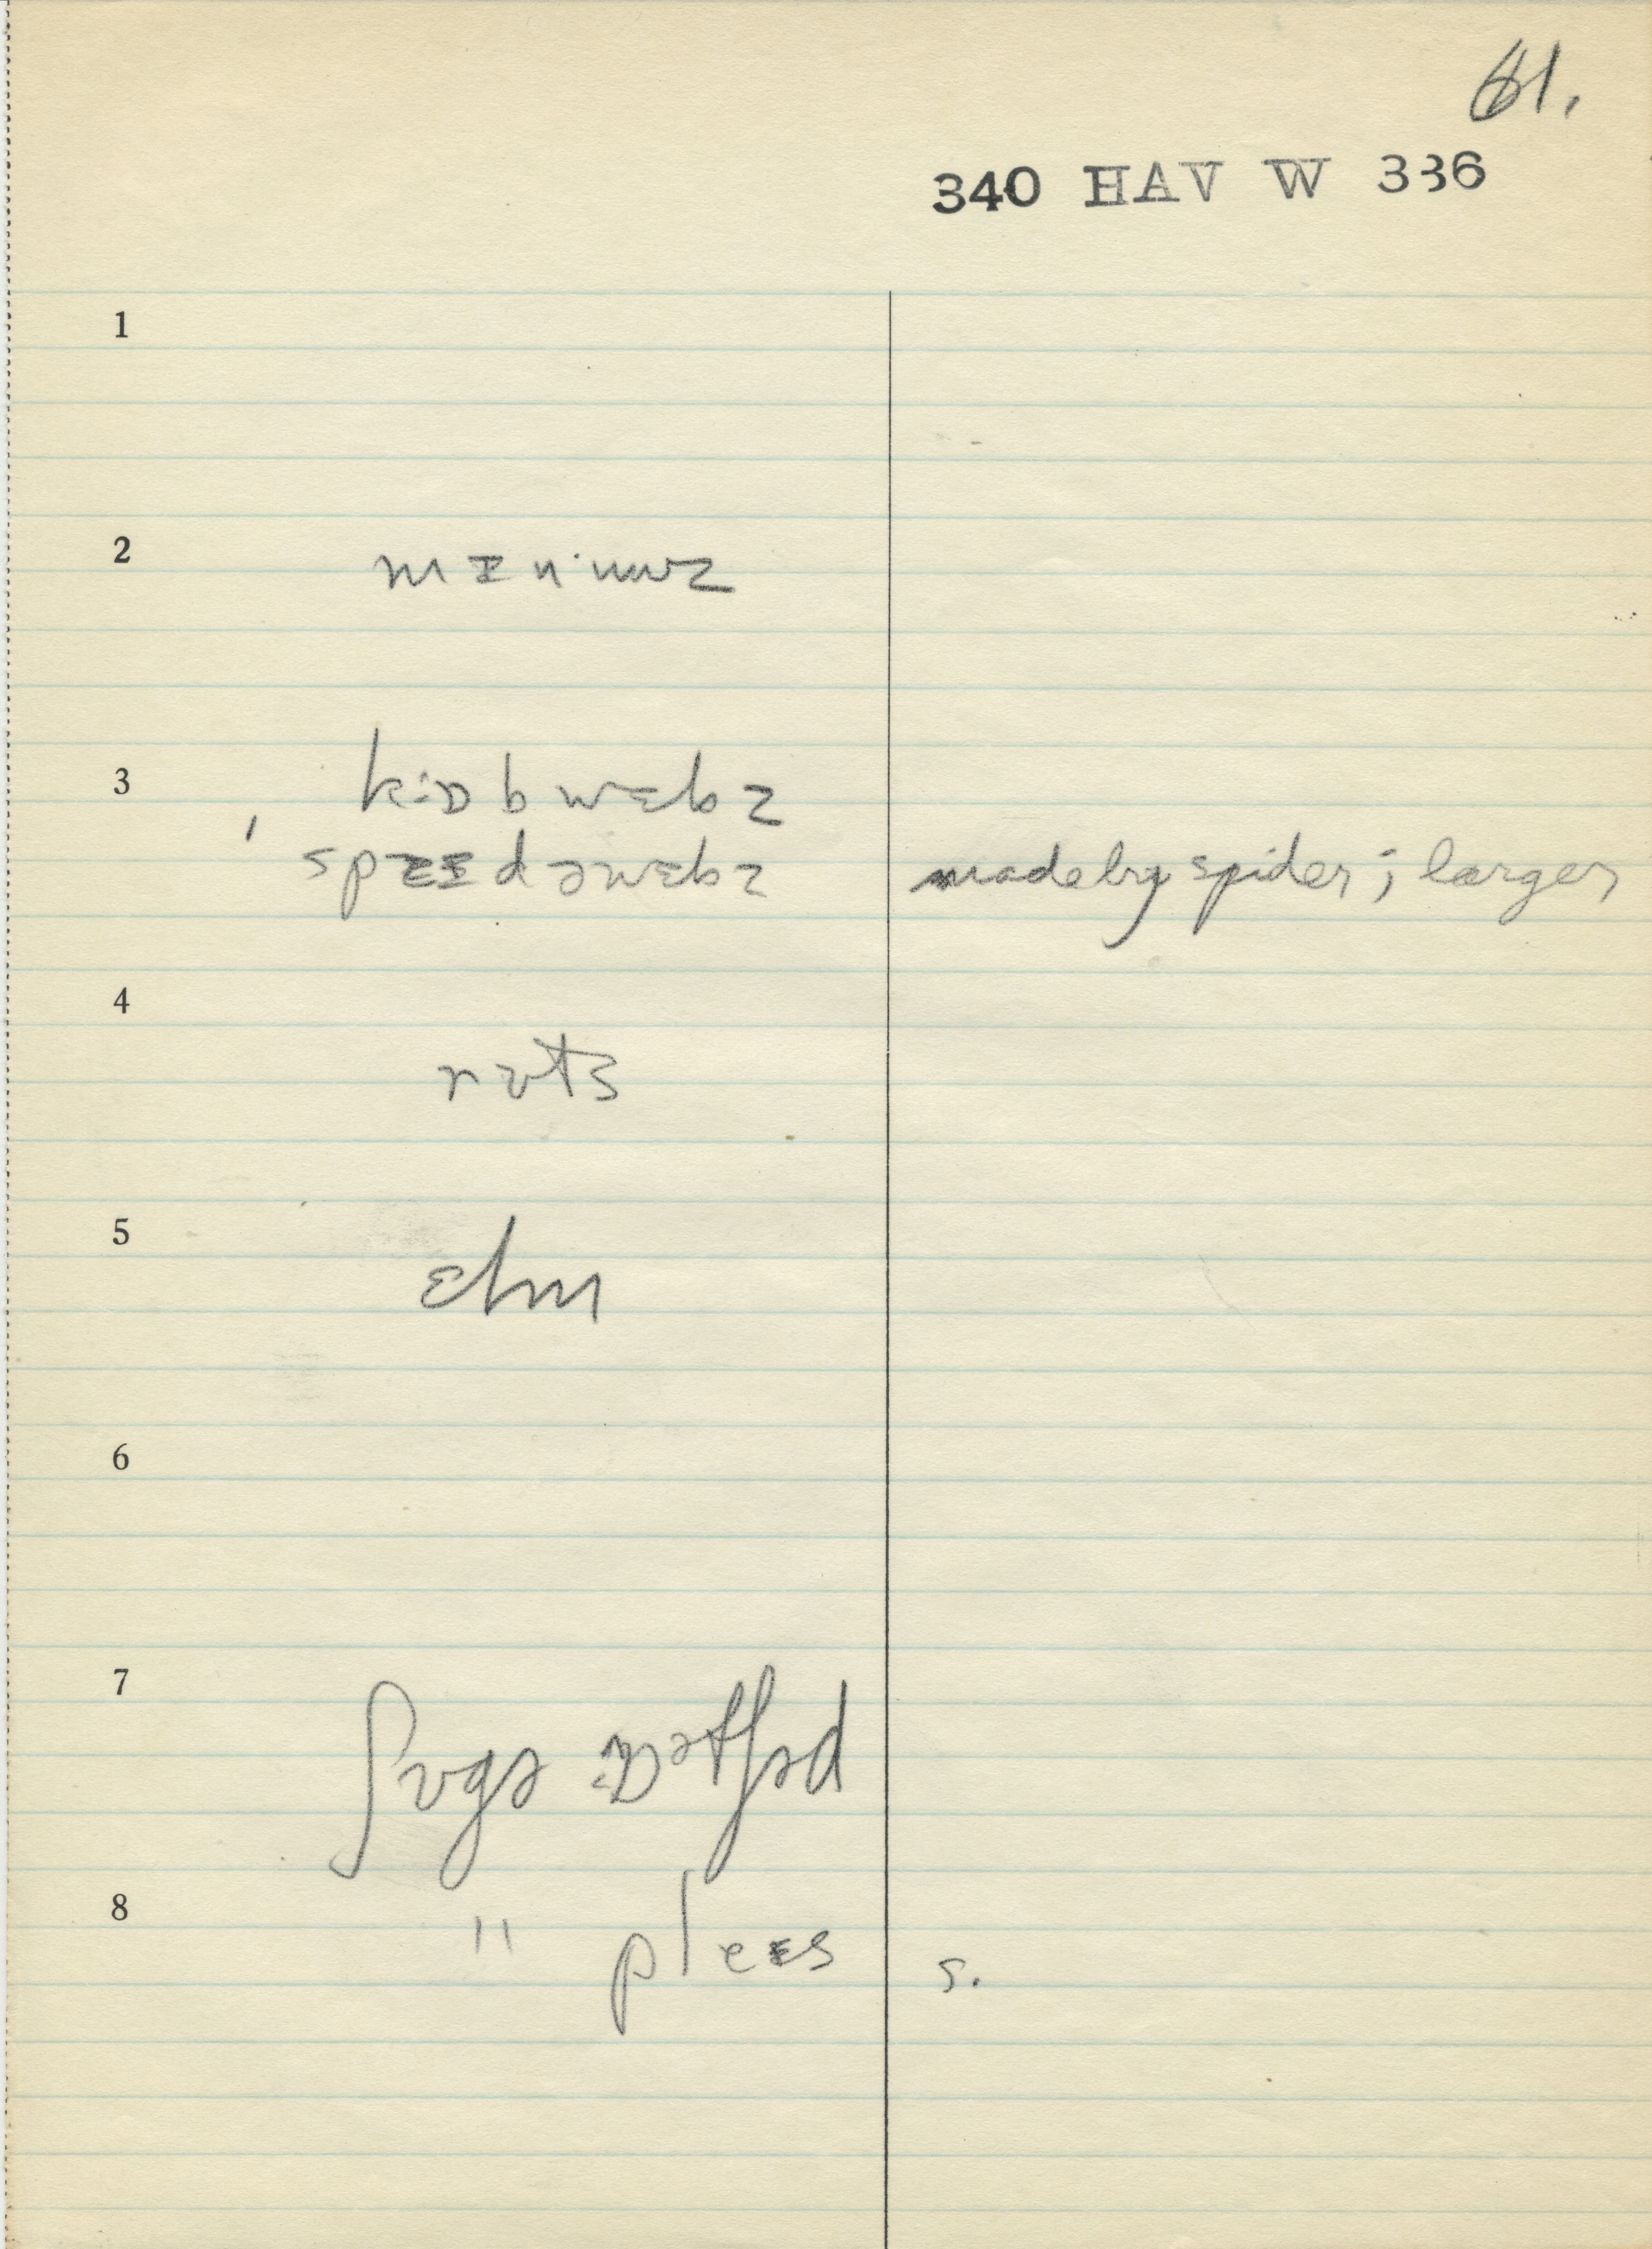 61.
340 HAV W 336
1
2 mɪnɪuwz
3 kɒbwɛbz
spɐɪdəwɛbz made by spider; larger
4 rʊts
5 ɛlm
6
7 ʃʊgə
8 " pleɛs s.